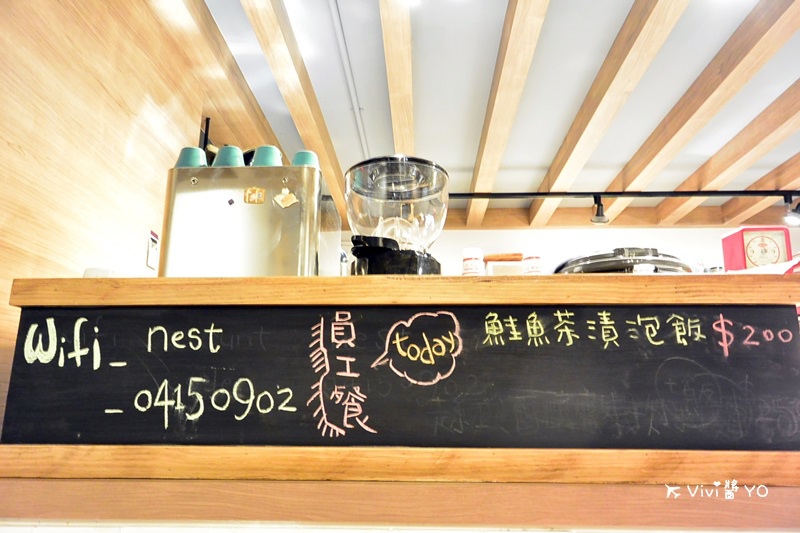 Wifi_ nest
_04150902
員工餐
today
鮭魚茶漬泡飯 $200
Vivi醬 YO